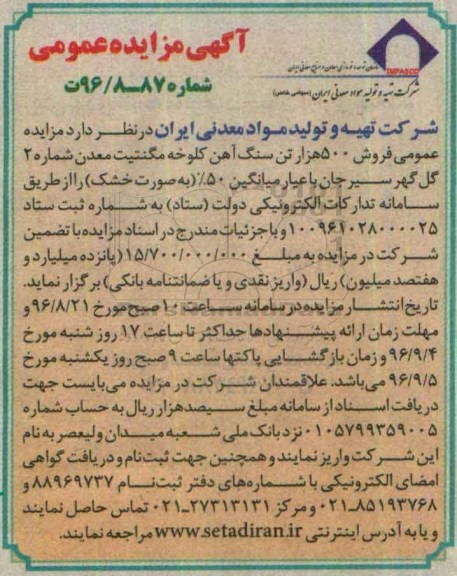 آگهی مزایده عمومی
شماره ۸۷ـ۹۶/۸ت
IMPASCO
شرکت تهیه و تولید مواد معدنی ایران (سهامی خاص)
شرکت تهیه و تولید مواد معدنی ایران در نظر دارد مزایده
عمومی فروش ۵۰۰هزار تن سنگ آهن کلوخه مگنتیت معدن شماره ۲
گل گهر سیرجان با عیار میانگین ۵۰٪ (به صورت خشک) را از طریق
سامانه تدارکات الکترونیکی دولت (ستاد) به شماره ثبت ستاد
۱۰۰۹۶۱۰۲۸۰۰۰۰۲۵ و با جزئیات مندرج در اسناد مزایده با تضمین
شرکت در مزایده به مبلغ ۱۵/۷۰۰/۰۰۰/۰۰۰ (پانزده میلیارد و
هفتصد میلیون) ریال (واریز نقدی و یا ضمانتنامه بانکی) برگزار نماید.
تاریخ انتشار مزایده در سامانه ساعت ۱۰ صبح مورخ ۹۶/۸/۲۱ و
مهلت زمان ارائه پیشنهادها حداکثر تا ساعت ۱۷ روز شنبه مورخ
۹۶/۹/۴ و زمان بازگشایی پاکتها ساعت ۹ صبح روز یکشنبه مورخ
۹۶/۹/۵ می‌باشد. علاقمندان شرکت در مزایده می‌بایست جهت
دریافت اسناد از سامانه مبلغ سیصدهزار ریال به حساب شماره
۰۱۰۵۷۹۹۳۵۹۰۰۵ نزد بانک ملی شعبه میدان ولیعصر به نام
این شرکت واریز نمایند و همچنین جهت ثبت‌نام و دریافت گواهی
امضای الکترونیکی با شماره‌های دفتر ثبت‌نام ۸۸۹۶۹۷۳۷ و
۰۲۱-۸۵۱۹۳۷۶۸ و مرکز ۰۲۱-۲۷۳۱۳۱۳۱ تماس حاصل نمایند
و یا به آدرس اینترنتی www.setadiran.ir مراجعه نمایند.